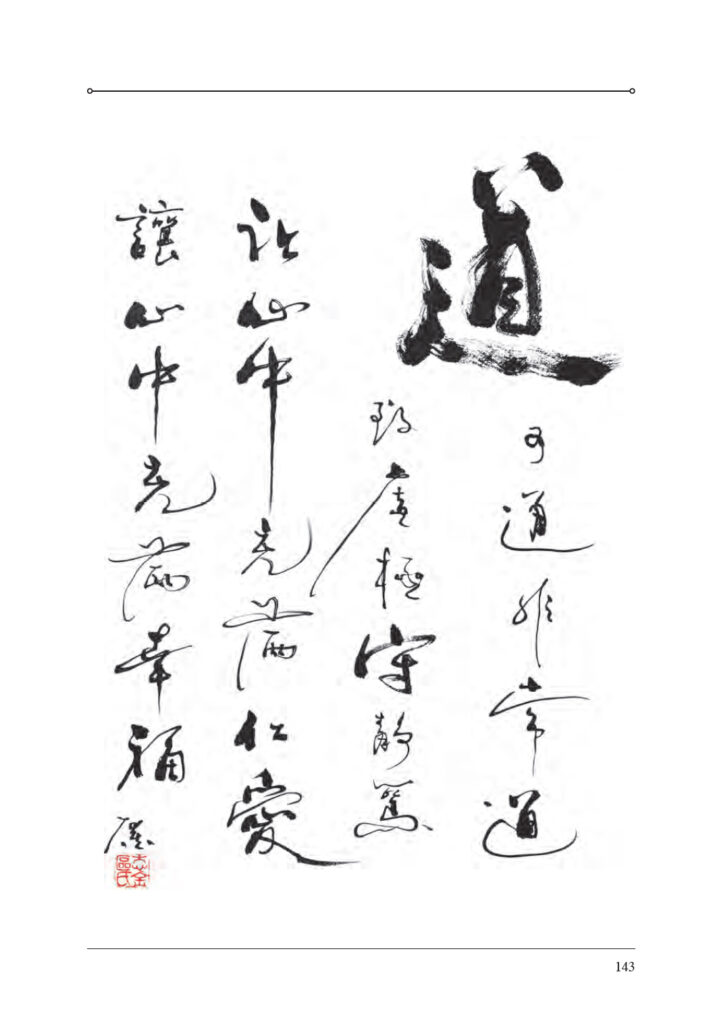 道
可道非常道
致虚極守靜篤
让心中充满仁愛
讓心中充满幸福
143